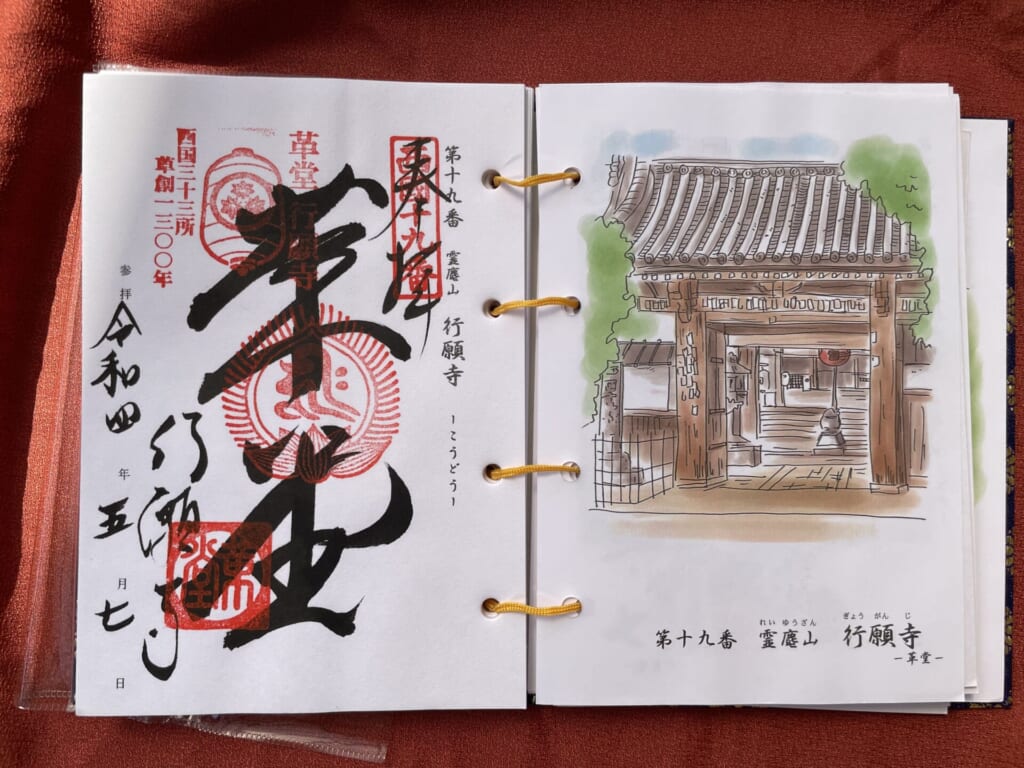 第十九番 霊應山 行願寺 ーこうどうー
奉拝
西国十九番
革堂 行願寺
西国三十三所
草創一三〇〇年
革堂
行願寺
革堂
参拝 令和四年五月七日
れいゆうざん ぎょうがんじ
第十九番 霊應山 行願寺
ー革堂ー